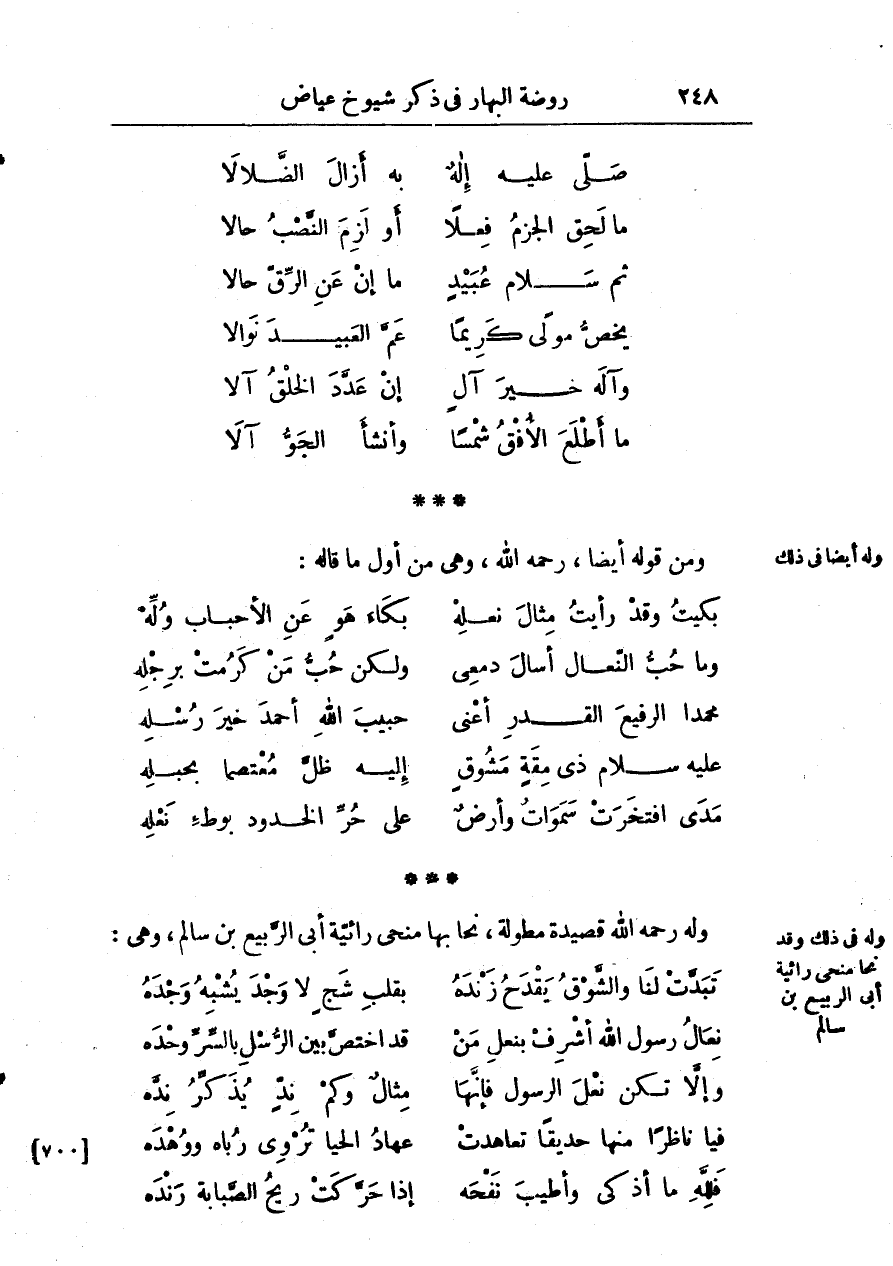 ٢٤٨ روضة البهار فى ذكر شيوخ عياض
صَلّى عليه إِلهٌ به أَزالَ الضَّلالَا
ما لَحِق الجزمُ فِعلًا أَو لَزِمَ النَّصْبُ حالا
ثم سَلام عُبَيْدٍ ما إنْ عَنِ الرِّقّ حالا
يخصُّ مولًى كَرِيمًا عَمَّ العَبيدَ نَوالا
وآلَه خيرَ آلٍ إنْ عَدَّدَ الخلْقُ آلا
ما أَطْلَعَ الأُفْقُ شمْسًا وأنشأَ الجَوُّ آلَا
***
وله أيضا فى ذلك
ومن قوله أيضا، رحمه الله، وهى من أول ما قاله :
بكيتُ وقدْ رأيتُ مِثالَ نعلِهْ بكَاء هَوٍ عَنِ الأحباب وُلِّهْ
وما حُبُّ النّعال أسالَ دمعِى ولكن حُبُّ مَنْ كَرُمتْ بِرِجْلِهِ
محمدا الرفيعَ القدرِ أعْنى حبيبَ اللهِ أحمدَ خيرَ رُسْلِهِ
عليه سلام ذى مِقَةٍ مَشُوقٍ إليه ظلَّ مُعْتصما بحبلِهِ
مَدَى افتخَرَتْ سَمَوَاتٌ وأرضٌ على حُرِّ الخدود بوطءِ نَعْلِهِ
***
وله فى ذلك وقد
نحا منحى رائية
أبى الربيع بن
سالم
وله رحمه الله قصيدة مطولة، نحا بها منحى رائيّة أبى الرَّبيع بن سالم، وهى :
تَبَدَّتْ لنَا والشَّوْقُ يَقْدَحُ زَنْدَهُ بقلبِ شَجٍ لا وَجْدَ يُشْبِهُ وَجْدَهُ
نِعَالُ رسول الله أشْرِفْ بنعلِ مَنْ قد اختصَّ بين الرُّسْلِ بالسِّرِّ وحْدَه
وإلَّا تكن نعْلَ الرسول فإنَّهَا مِثالٌ وكمْ نِدٍّ يُذَكِّرُ نِدَّه
فيا ناظرًا منها حديقًا تعاهدتْ عهادُ الحيا تُرْوِى رُباه ووُهْدَه
[٧٠٠]
فَلِلّهِ ما أذكى وأطيبَ نَفْحَه إذا حَرَّكتْ ريحُ الصَّبابة رَنْدَه